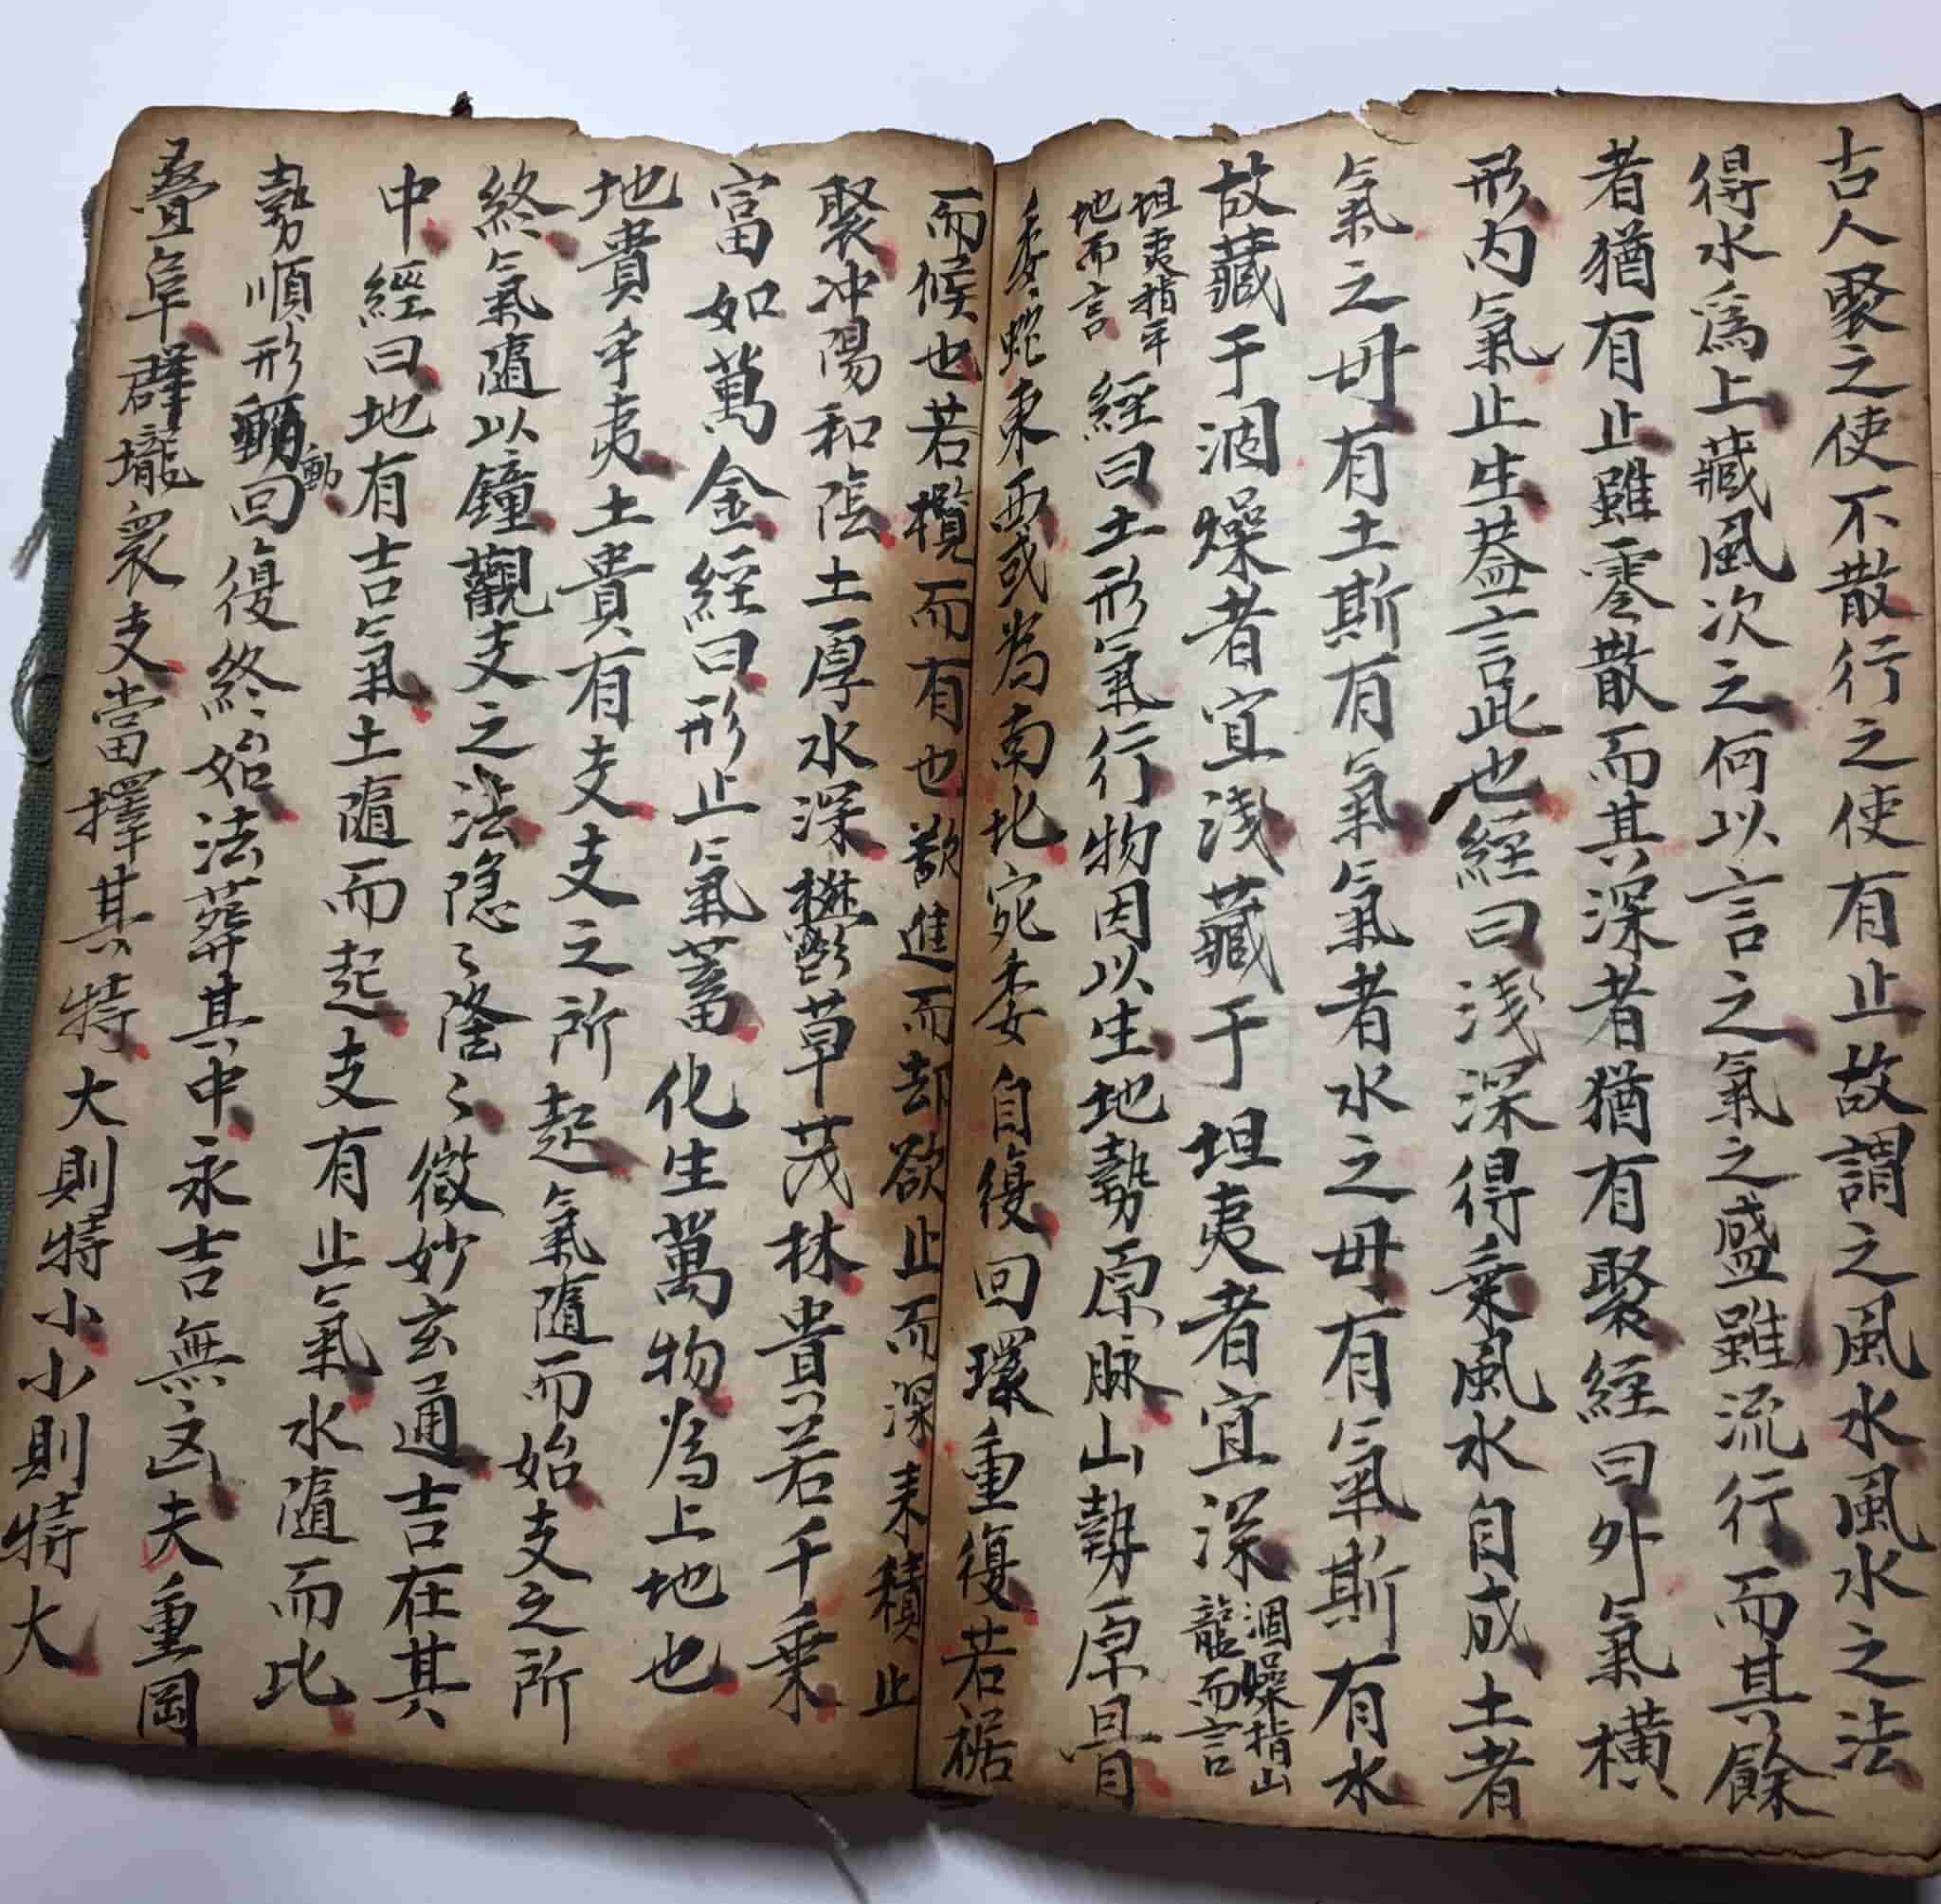 古人聚之使不散行之使有止故謂之風水風水之法
得水為上藏風次之何以言之氣之盛雖流行而其餘
者猶有止雖零散而其深者猶有聚經曰外氣橫
形內氣止生蓋言此也經曰浅深得乗風水自成土者
氣之毋有土斯有氣氣者水之毋有氣斯有水
故藏于涸燥者宜浅藏于坦夷者宜深涸燥指山
龍而言
坦夷指平
地而言經曰土形氣行物因以生地勢原脉山勢原骨
委蛇東西或為南北宛委自復回環重復若裾
而候也若欖而有也欲進而却欲止而深来積止
聚冲陽和陰土厚水深欝草茂林貴若千乗
富如萬金經曰形止氣蓄化生萬物為上地也
地貴乎夷土貴有支支之所起氣隨而始支之所
終氣隨以鐘觀支之法隐〻隆〻微妙玄通吉在其
中經曰地有吉氣土隨而起支有止氣水隨而比
勢順形動回復終始法葬其中永吉無凶夫重岡
叠阜群壠衆支當擇其特大則特小小則特大